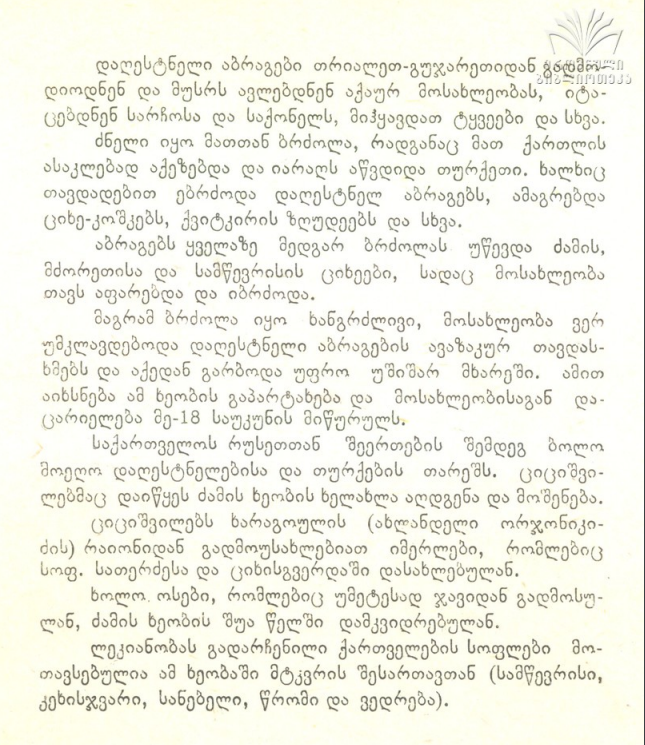 დაღესტნელი აბრაგები თრიალეთ-გუჯარეთიდან გადმო-
დიოდნენ და მუსრს ავლებდნენ აქაურ მოსახლეობას, იტა-
ცებდნენ სარჩოსა და საქონელს, მიჰყავდათ ტყვეები და სხვა.
ძნელი იყო მათთან ბრძოლა, რადგანაც მათ ქართლის
ასაკლებად აქეზებდა და იარაღს აწვდიდა თურქეთი. ხალხიც
თავდადებით ებრძოდა დაღესტნელ აბრაგებს, ამაგრებდა
ციხე-კოშკებს, ქვიტკირის ზღუდეებს და სხვა.
აბრაგებს ყველაზე მედგარ ბრძოლას უწევდა ძამის,
მძორეთისა და სამწევრისის ციხეები, სადაც მოსახლეობა
თავს აფარებდა და იბრძოდა.
მაგრამ ბრძოლა იყო ხანგრძლივი, მოსახლეობა ვერ
უმკლავდებოდა დაღესტნელი აბრაგების ავაზაკურ თავდას-
ხმებს და აქედან გარბოდა უფრო უშიშარ მხარეში. ამით
აიხსნება ამ ხეობის გაპარტახება და მოსახლეობისაგან და-
ცარიელება მე-18 საუკუნის მიწურულს.
საქართველოს რუსეთთან შეერთების შემდეგ ბოლო
მოეღო დაღესტნელებისა და თურქების თარეშს. ციციშვი-
ლებმაც დაიწყეს ძამის ხეობის ხელახლა აღდგენა და მოშენება.
ციციშვილებს ხარაგოულის (ახლანდელი ორჯონიკი-
ძის) რაიონიდან გადმოუსახლებიათ იმერლები, რომლებიც
სოფ. სათერძესა და ციხისგვერდაში დასახლებულან.
ხოლო ოსები, რომლებიც უმეტესად ჯავიდან გადმოსუ-
ლან, ძამის ხეობის შუა წელში დამკვიდრებულან.
ლეკიანობას გადარჩენილი ქართველების სოფლები მო-
თავსებულია ამ ხეობაში მტკვრის შესართავთან (სამწევრისი,
კეხისჯვარი, სანებელი, წრომი და ვედრება).